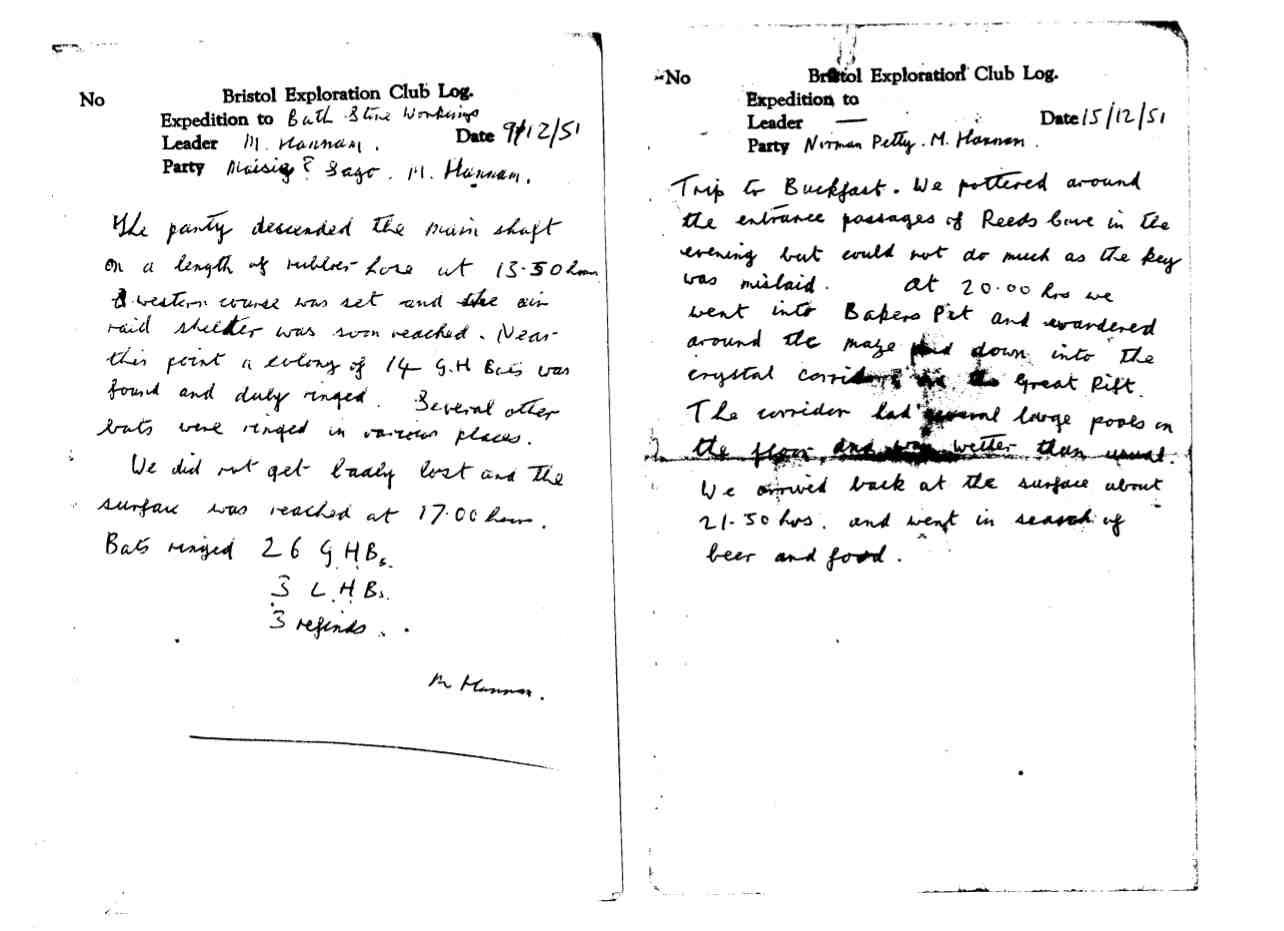 No
Bristol Exploration Club Log.
Expedition to Bath Stone Workings
Leader M. Hannam. Date 9/12/51
Party ? Sago. M. Hannam.
The party descended the main shaft
on a length of rubber hose at 13.50 hours
A western course was set and the air
raid shelter was soon reached. Near
this point a colony of 14 G.H Bats was
found and duly ringed. Several other
bats were ringed in various places.
We did not get badly lost and the
surface was reached at 17.00 hours.
Bats ringed 26 G.H.Bs.
3 L.H.Bs.
3 refinds.
M Hannam.
No
Bristol Exploration Club Log.
Expedition to
Leader — Date 15/12/51
Party Norman Petty. M. Hannam.
Trip to Buckfast. We pottered around
the entrance passages of Reeds Cave in the
evening but could not do much as the key
was mislaid. At 20.00 hrs we
went into Bakers Pit and wandered
around the maze and down into the
crystal corridor the Great Rift.
The corridor had several large pools on
the floor and was wetter than usual.
We arrived back at the surface about
21.50 hrs. and went in search of
beer and food.